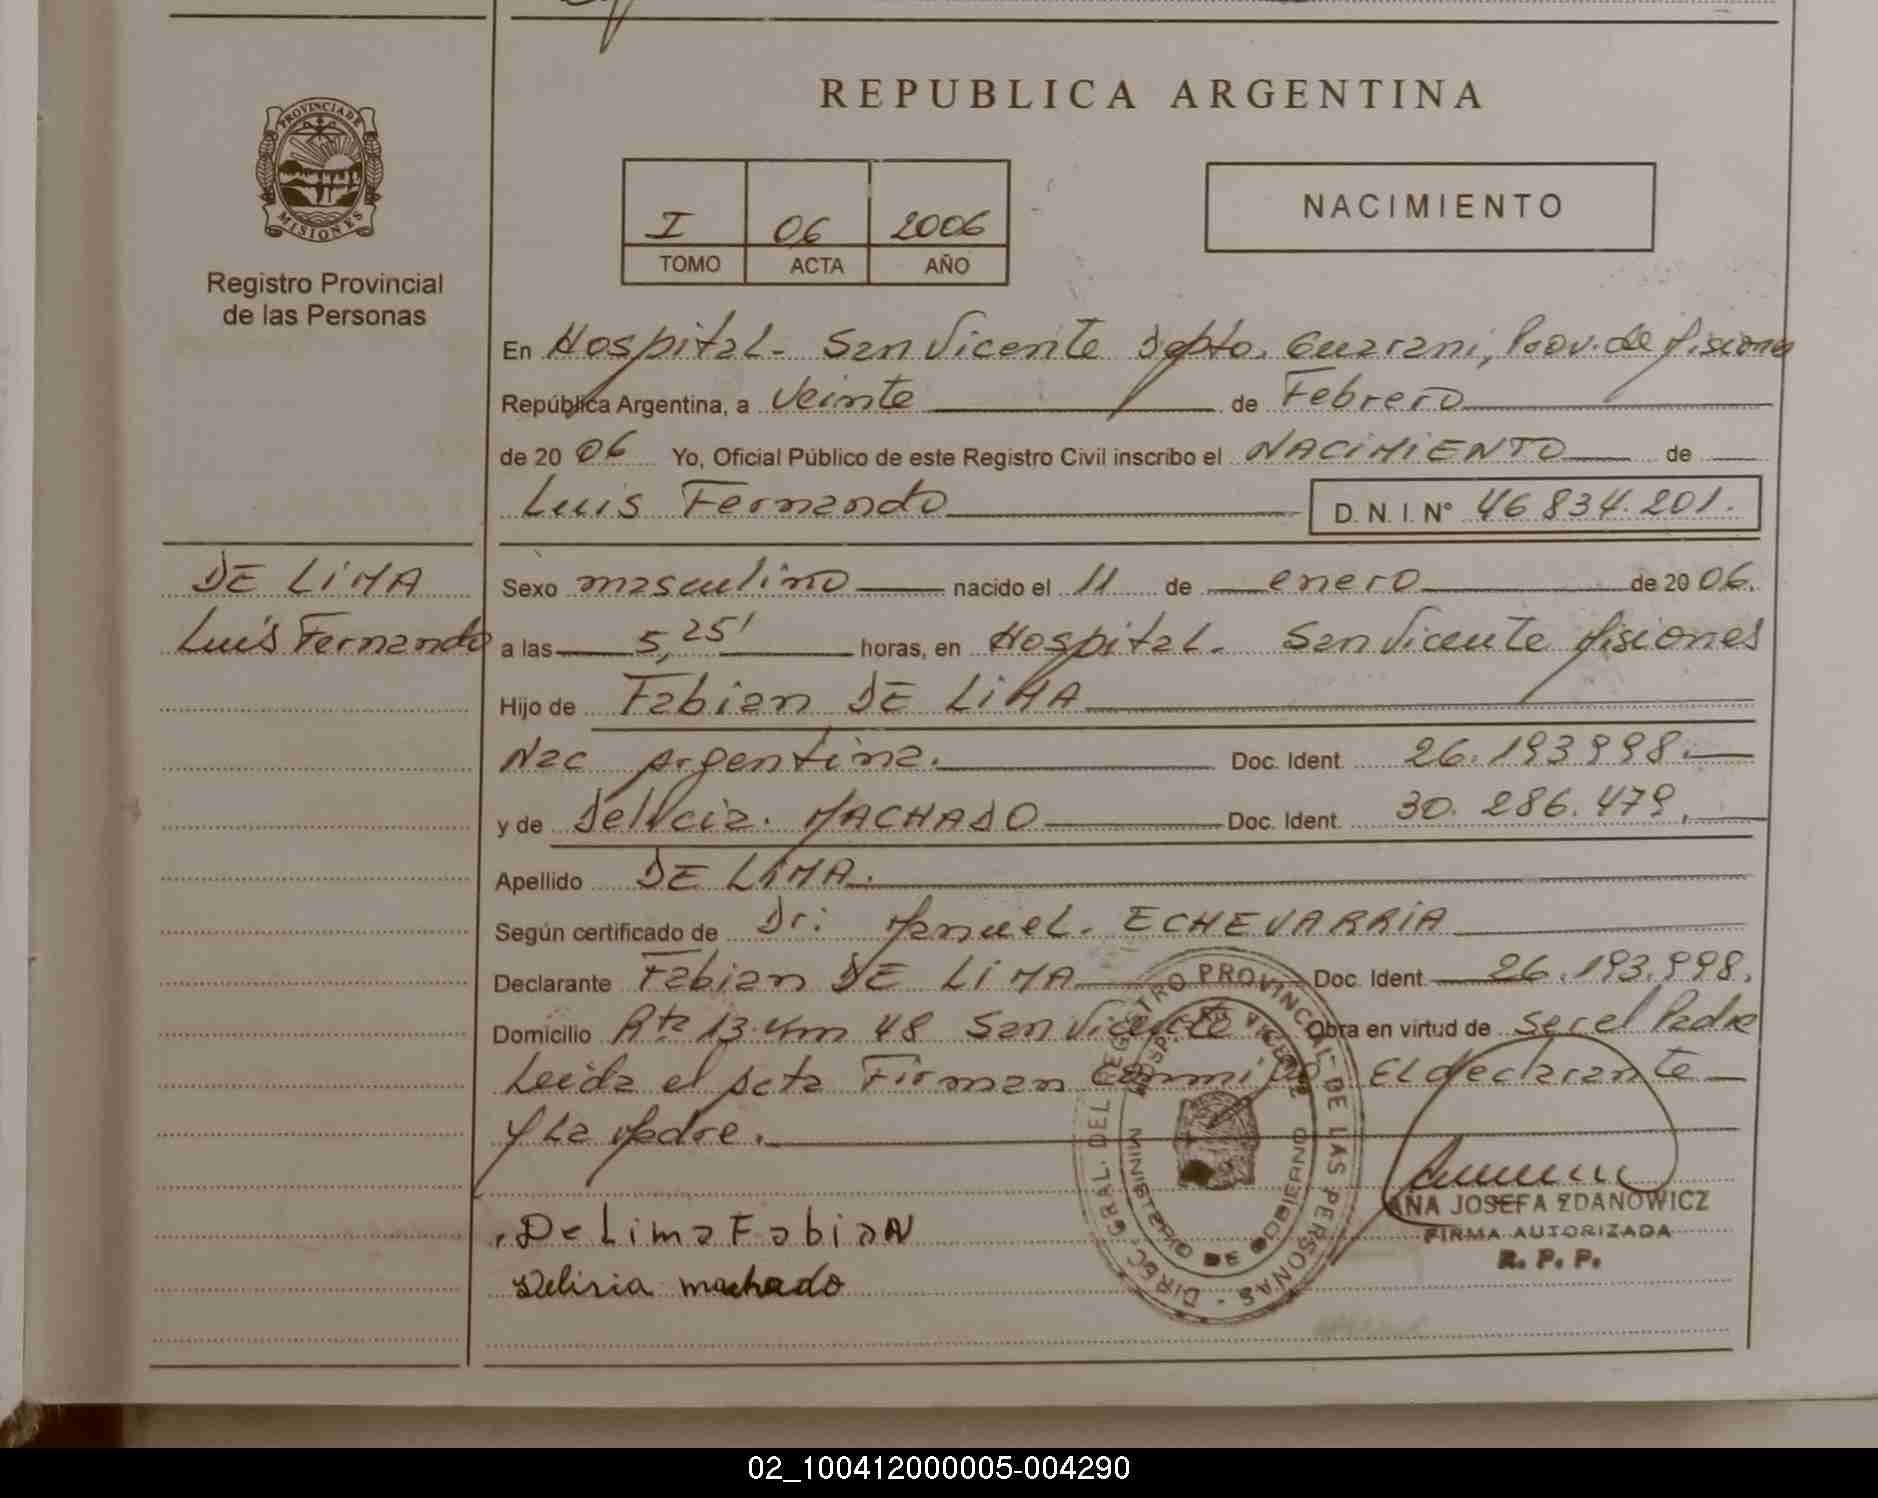 REPUBLICA ARGENTINA
PROVINCIA DE MISIONES
Registro Provincial
de las Personas
I 06 2006
TOMO ACTA AÑO
NACIMIENTO
En Hospital - San Vicente Dpto. Guarani, Prov. de Misiones
República Argentina, a Veinte de Febrero
de 2006 Yo, Oficial Público de este Registro Civil inscribo el NACIMIENTO de
Luis Fernando D. N. I. N° 46 834.201.
DE LIMA
Luis Fernando
Sexo masculino nacido el 11 de enero de 2006.
a las 5,25' horas, en Hospital - San Vicente Misiones
Hijo de Fabian DE LIMA
Nac Argentina. Doc. Ident. 26.193.998.
y de Delicia. MACHADO Doc. Ident. 30.286.479.
Apellido DE LIMA.
Según certificado de Dr: Manuel. ECHEVARRIA
Declarante Fabian DE LIMA Doc. Ident. 26.193.998.
Domicilio Rta 13 Km 48 San Vicente Obra en virtud de ser el Padre
Leida el acta Firman Conmigo El declarante
y La Madre.
De Lima Fabian
Delisia machado
DIREC. GRAL. DEL REGISTRO PROVINCIAL DE LAS PERSONAS -
MINISTERIO DE GOBIERNO
HOSP. SAN VICENTE
ANA JOSEFA ZDANOWICZ
FIRMA AUTORIZADA
R. P. P.
02_100412000005-004290